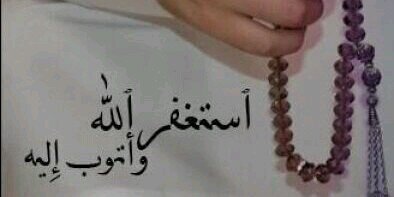 أستغفر ألله
وأتوب إليه